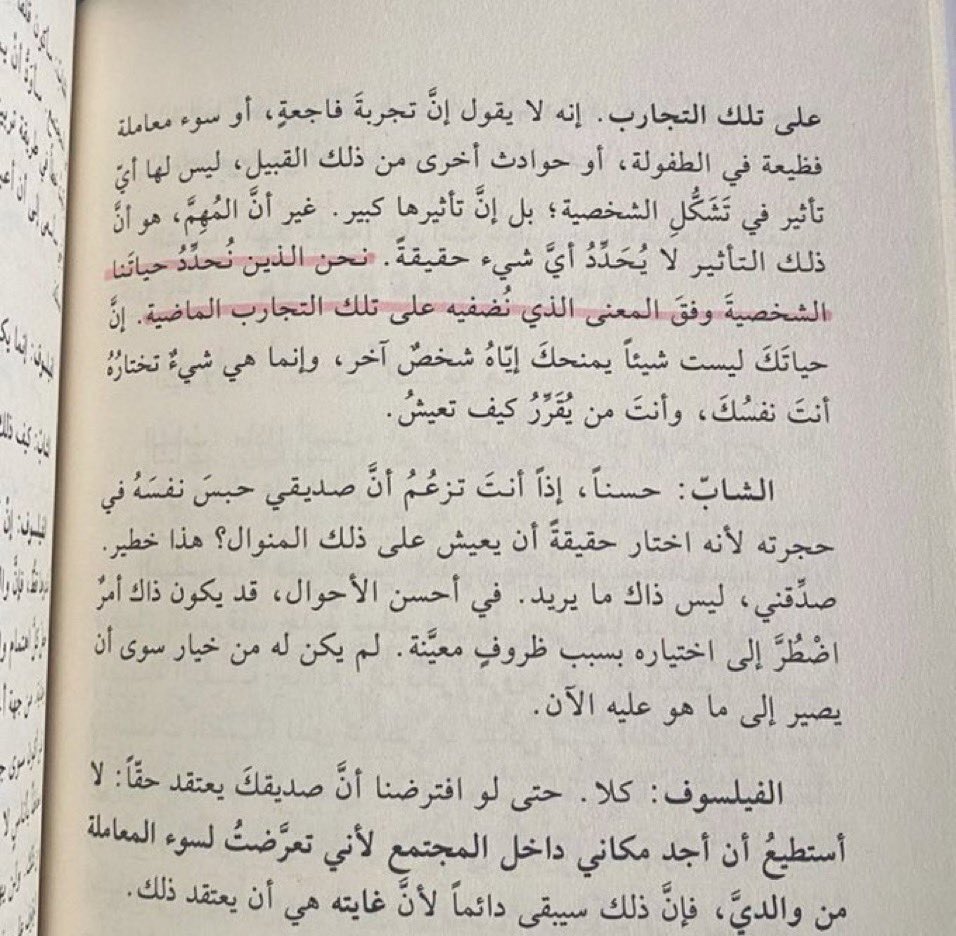 على تلك التجارب. إنه لا يقول إنَّ تجربةَ فاجعةٍ، أو سوء معاملة
فظيعة في الطفولة، أو حوادث أخرى من ذلك القبيل، ليس لها أيّ
تأثير في تَشَكُّلِ الشخصية؛ بل إنَّ تأثيرها كبير. غير أنَّ المُهِمَّ، هو أنَّ
ذلك التأثير لا يُحَدِّدُ أيَّ شيء حقيقةً. نحن الذين نُحدِّدُ حياتَنا
الشخصيةَ وفقَ المعنى الذي نُضفيه على تلك التجارب الماضية. إنَّ
حياتَكَ ليست شيئاً يمنحكَ إيّاهُ شخصٌ آخر، وإنما هي شيءٌ تختارُهُ
أنتَ نفسُكَ، وأنتَ من يُقَرِّرُ كيف تعيشُ.
الشابّ: حسناً، إذاً أنتَ تزعُمُ أنَّ صديقي حبسَ نفسَهُ في
حجرته لأنه اختار حقيقةً أن يعيش على ذلك المنوال؟ هذا خطير.
صدِّقني، ليس ذاك ما يريد. في أحسن الأحوال، قد يكون ذاك أمرٌ
اضْطُرَّ إلى اختياره بسبب ظروفٍ معيَّنة. لم يكن له من خيار سوى أن
يصير إلى ما هو عليه الآن.
الفيلسوف: كلا. حتى لو افترضنا أنَّ صديقكَ يعتقد حقّاً: لا
أستطيعُ أن أجد مكاني داخل المجتمع لأني تعرَّضتُ لسوء المعاملة
من والديَّ، فإنَّ ذلك سيبقى دائماً لأنَّ غايته هي أن يعتقد ذلك.